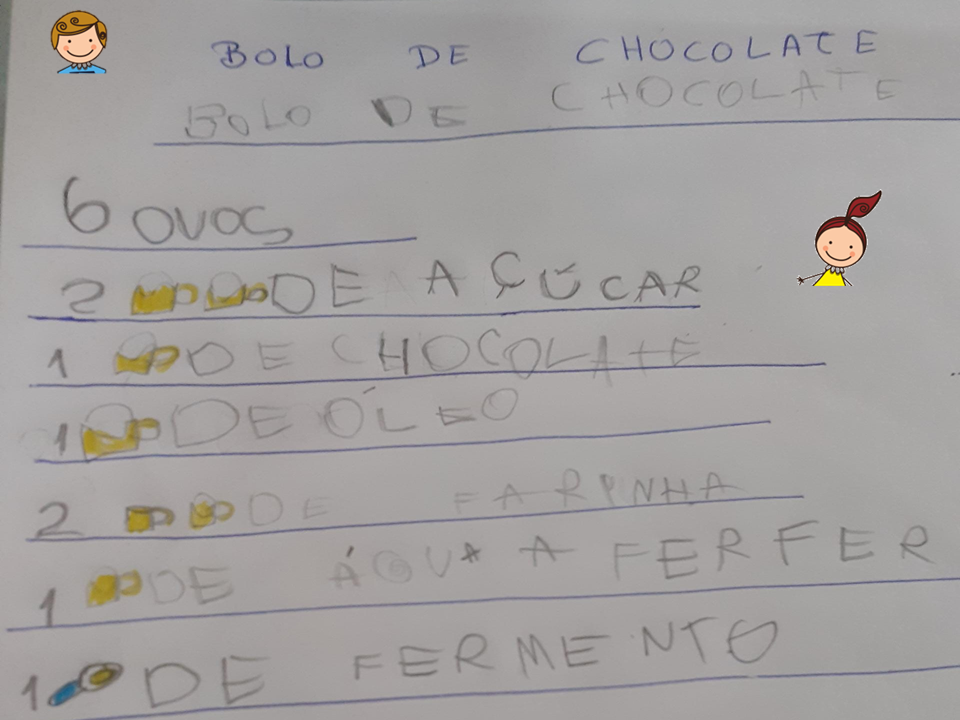 BOLO DE CHOCOLATE
BOLO DE CHOCOLATE
6 OVOS
2 DE AÇÚCAR
1 DE CHOCOLATE
1 DE ÓLEO
2 DE FARINHA
1 DE ÁGUA A FERFER
1 DE FERMENTO